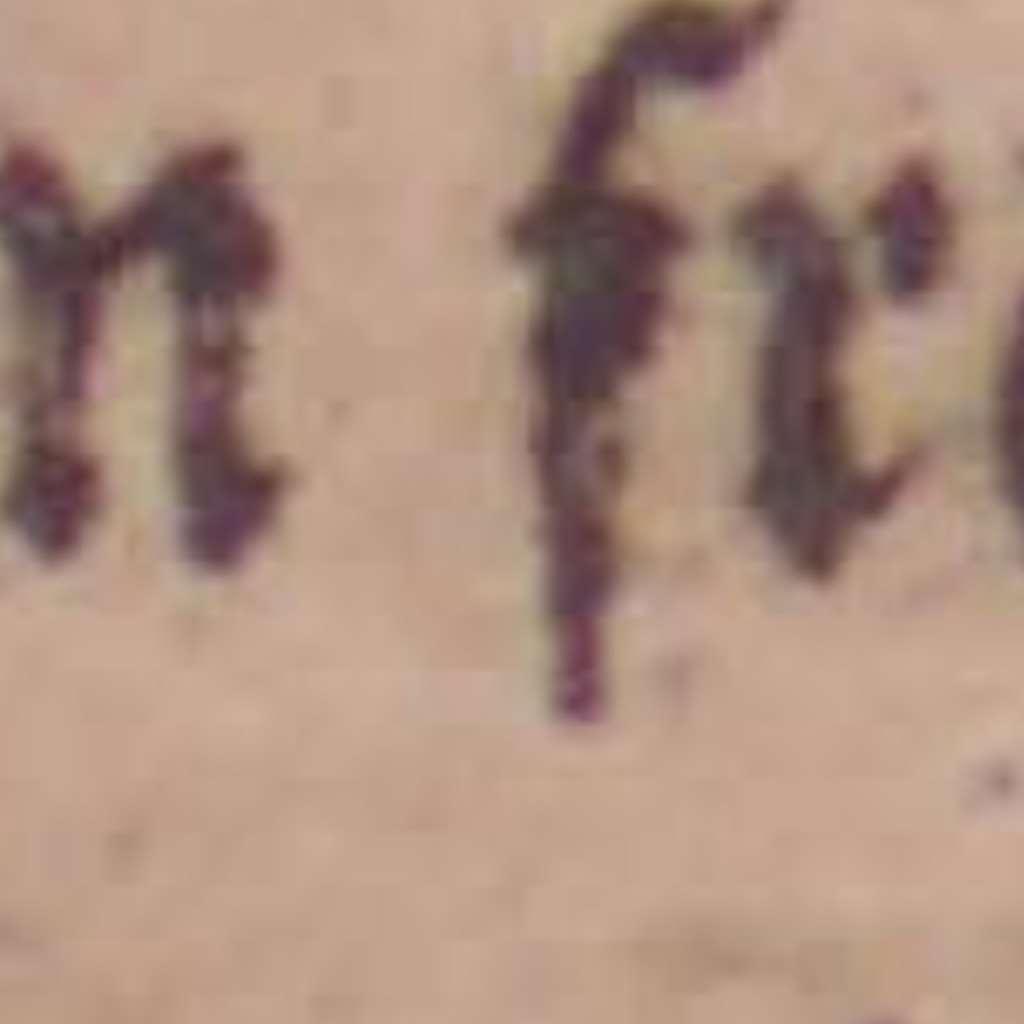 n fr